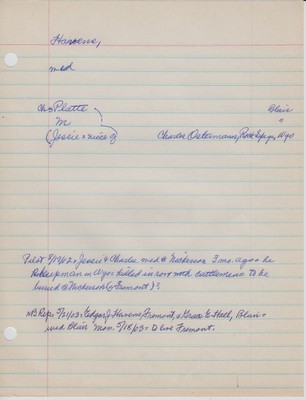 Havens,
med
ch = Platte
M
(Jessie = niece of
Blair
=
Charles Ostermann, Rock Springs, Wyo
Pilot 9/17/02 = Jessie & Charles med @ Nickerson 3 mo. ago = he
sheepman in Wyo = killed in row with cattlemen = to be
buried @ Nickerson (= Fremont)?
NB Rep = 5/21/03 = Edgar J Havens, Fremont, & Grace E Hall, Blair =
med Blair Mon. 5/18/03 = live Fremont.